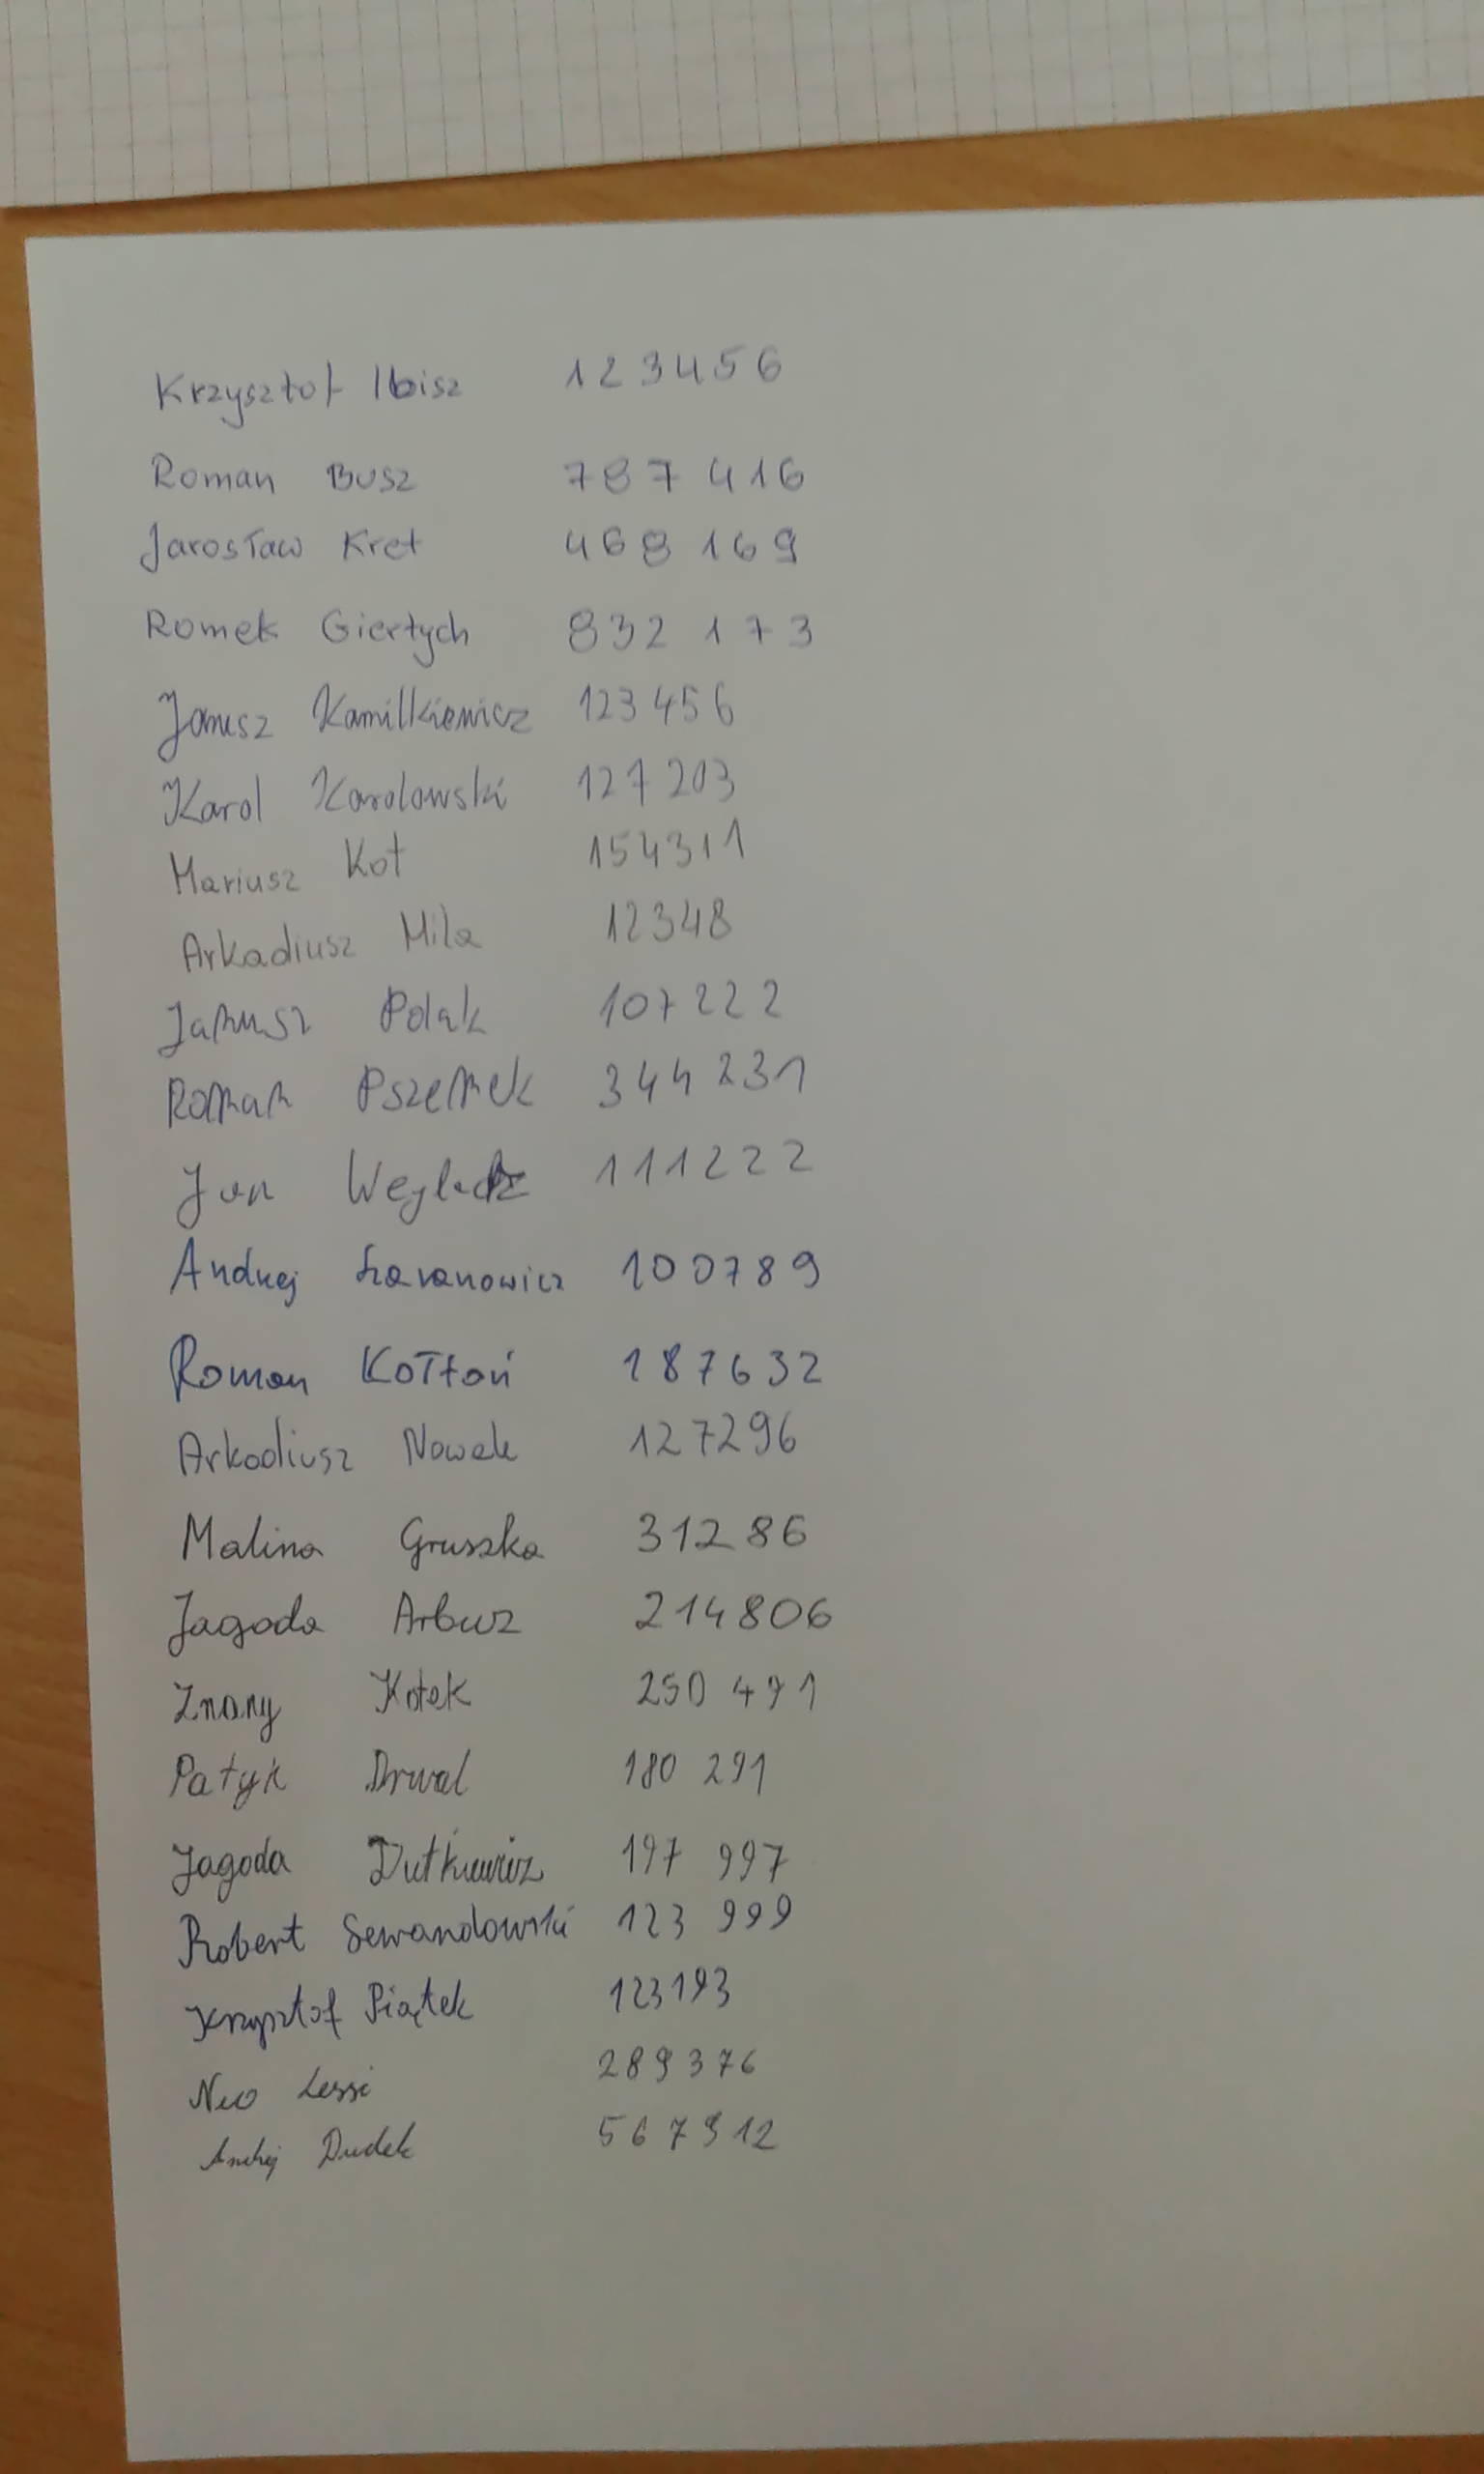 Krzysztof Ibisz 123456
Roman Busz 787416
Jarosław Kret 468169
Romek Giertych 832173
Janusz Kamilkiewicz 123456
Karol Karolowski 127203
Mariusz Kot 154311
Arkadiusz Mila 12348
Janusz Polak 107222
Roman Pszemek 344231
Jan 111222
Andrzej 100789
Roman Kołtoń 187632
Arkadiusz Nowak 127296
Malina Gruszka 31286
Jagoda Arbuz 214806
Znany Kotek 250 491
Patyk Drwal 180 291
Jagoda Dutkiewicz 197 997
Robert Sewandowski 123 999
Krzysztof Piątek 123193
Neo Lessi 289376
Andrzej Dudek 567912